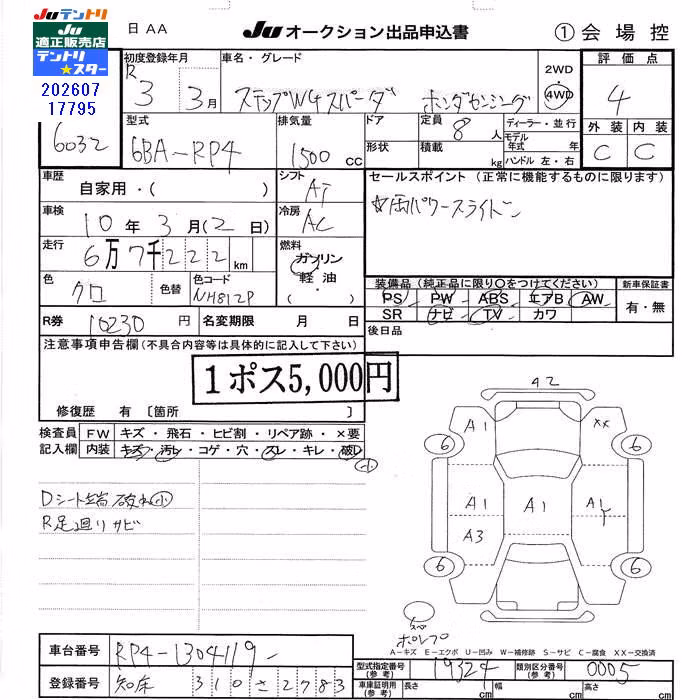 Juテントリ
Ju
適正販売店
テントリ
★スター
202607
17795
日 AA
Ju オークション出品申込書
① 会場控
6032
初度登録年月
R 3 3月
車名・グレード
ステップWGスパーダ ホンダセンシング
2WD
・
4WD
評価点
4
外装 内装
C C
型式
6BA-RP4
排気量
1500 CC
ドア
形状
定員 8人
積載 kg
ディーラー・並行
モデル年式 年式
ハンドル 左・右
車歴
自家用・( )
シフト
AT
セールスポイント(正常に機能するものに限ります)
☆両パワースライドドア
車検
10年3月(2日)
冷房
AC
走行
6万7千222km
燃料
ガソリン
軽油
・( )
色
クロ
色替
色コード
NH812P
装備品(純正品に限り○をつけてください)
PS PW ABS エアB AW
SR ナビ TV カワ
新車保証書
有・無
R券 10230円
名変期限 月 日
後日品
注意事項申告欄(不具合内容等は具体的に記入して下さい)
1ポス5,000円
修復歴 有〔箇所 〕
検査員記入欄
FW キズ・飛石・ヒビ割・リペア跡・×要
内装 キズ・汚レ・コゲ・穴・スレ・キレ・破レ
小
Dシート端破れ小
R足廻りサビ
A2
A1 XX
6 6
A1 A1 A1
A3
6 6
スペ
ホルプ
A-キズ E-エクボ U-凹み W-補修跡 S-サビ C-腐食 XX-交換済
車台番号 RP4-1304119-
登録番号 知床 310 さ 2783
型式指定番号(参考) 19324
類別区分番号(参考) 0005
車庫証明用(参考) 長さ cm 幅 cm 高さ cm